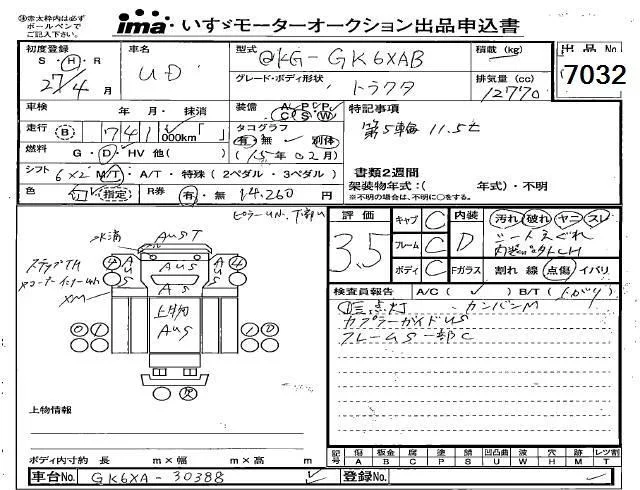 ④赤太枠内は必ず
ボールペンで
ご記入下さい。
ima いすゞモーターオークション出品申込書
初度登録 車名 型式 積載(kg) 出品No.
S・H・R
27/4 月
UD
QKG-GK6XAB
グレード・ボディ形状
トラクタ
排気量(cc)
12770
7032
車検 年 月・抹消
装備 A/C P/S P/W
特記事項
走行 B 741,000km「 」
タコグラフ
有・無 別体
(15年02月)
第5輪 11.5t
燃料 G・D・HV 他( )
書類2週間
シフト 6×2 M/T・A/T・特殊(2ペダル・3ペダル)
架装物年式:( 年式)・不明
※不明の場合は、不明に○をする。
色 指定 R券 有・無 14,260円
評価 3.5
キャブ C
フレーム C
ボディ C
内装 D
汚れ 破れ ヤニ スレ
シートえぐれ
Fガラス 割れ 線 点傷 イバリ
検査員報告 A/C( ) B/T(上がり)
点灯 カンバンM
カプラーガイドUS
フレームS一部C
水滴 AUST
AUS
AUS
AUS
AS
上物
AUS
XM
欠
上物情報
ボディ内寸約 長 m×幅 m×高 m
記号 傷 A 板金 B 腐 C 塗 P 錆 S 凹凸曲 U 波 W 穴 H 跡 M レツ割 T
車台No. GK6XA-30388
登録No.